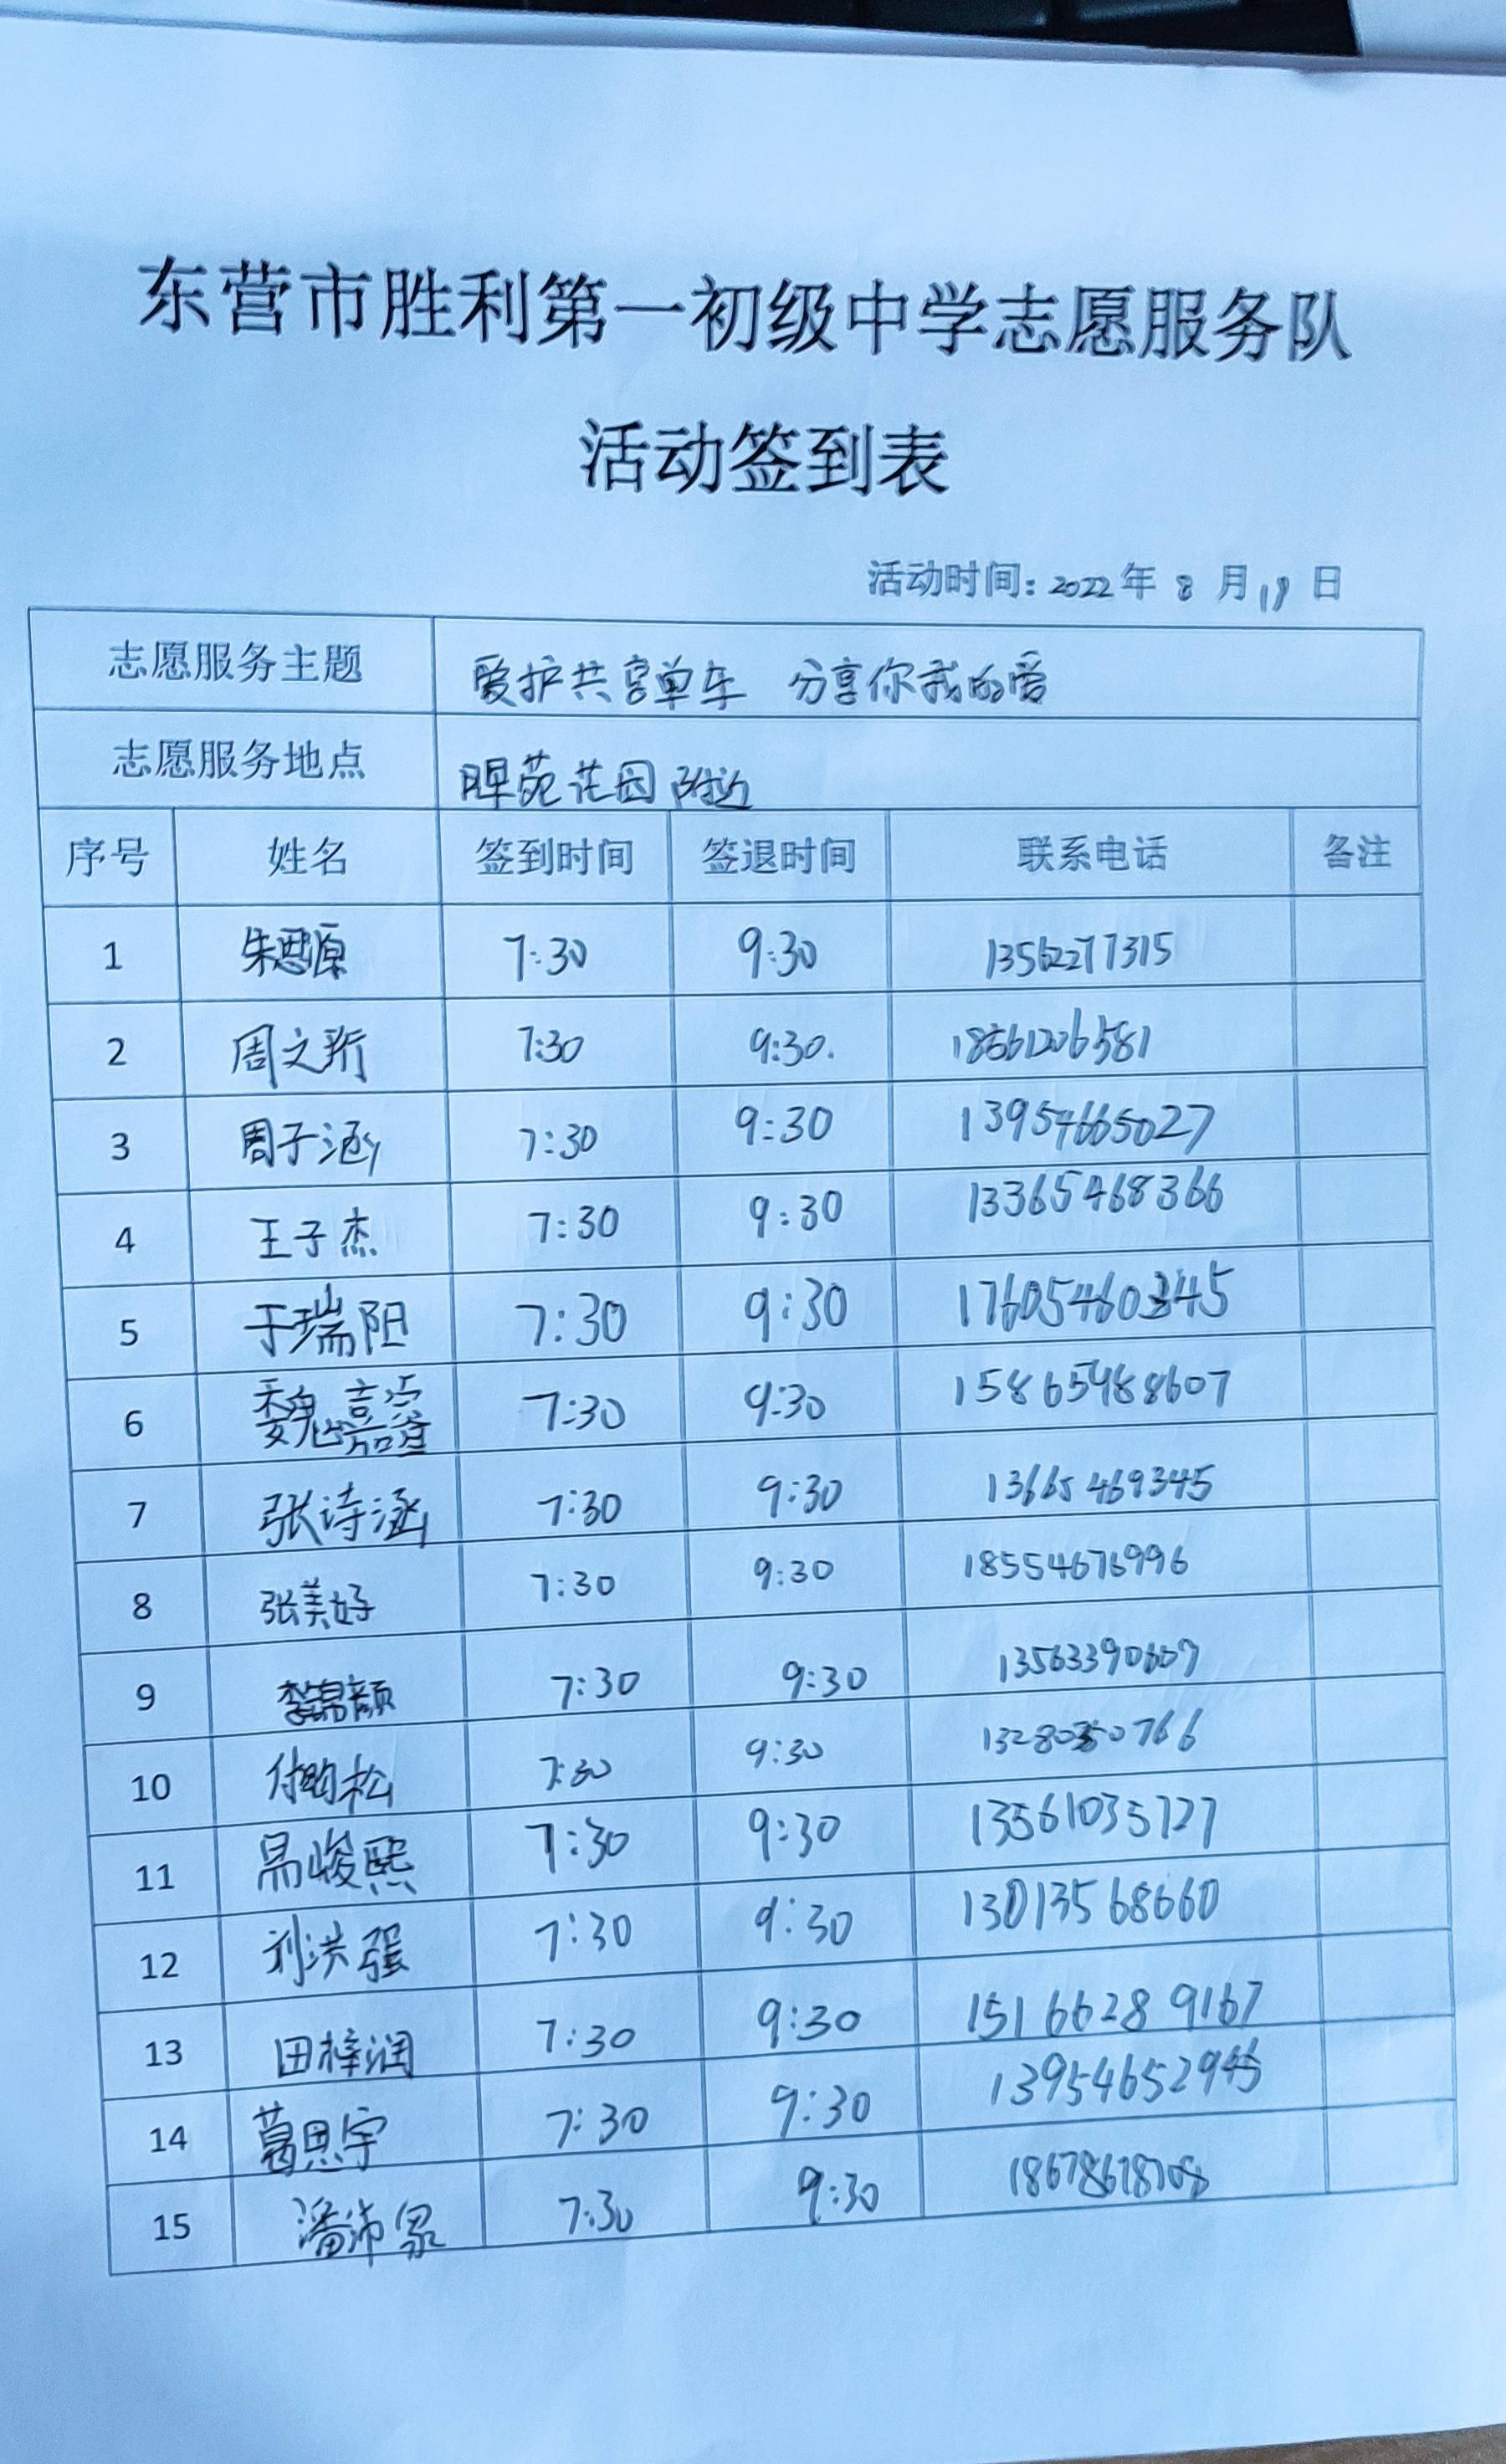 东营市胜利第一初级中学志愿服务队
活动签到表
活动时间:2022年 8 月 日
志愿服务主题 爱护共享单车 分享你我的爱
志愿服务地点 苑花园附近
序号 姓名 签到时间 签退时间 联系电话 备注
1 朱思源 7:30 9:30
2 周文珩 7:30 9:30. 18561206581
3 周子涵 7:30 9:30 13954665027
4 王子杰 7:30 9:30 13365468366
5 于瑞阳 7:30 9:30
6 魏嘉 7:30 9:30 15865468607
7 张诗涵 7:30 9:30 13665469345
8 张美好 7:30 9:30 18554676996
9 李锦颜 7:30 9:30
10 付昀松 7:30 9:30
11 峻熙 7:30 9:30 13561035727
12 刘洪强 7:30 9:30 13013568660
13 田梓润 7:30 9:30 15166289167
14 葛思宇 7:30 9:30
15 潘沛 7:30 9:30